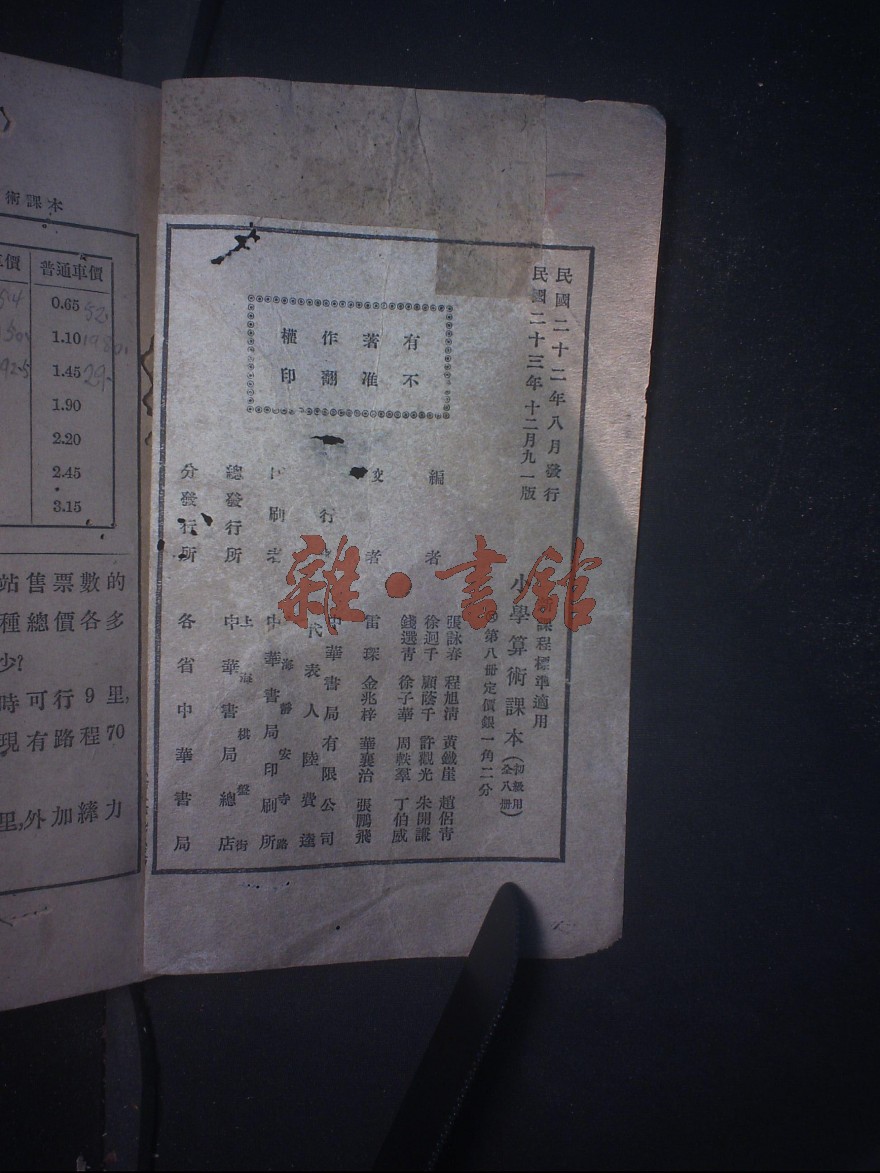 民國二十二年八月發行
民國二十三年十二月九一版
課程標準適用
小學算術課本(初級用 全八冊)
第八冊定價銀一角二分
有著作權
不准翻印
編者
張詠春 程旭清 黃鐵崖 趙侶青
徐迥千 顧蔭千 許觀光 朱開謙
錢選青 徐子華 周軼羣 丁伯威
校者
雷琛 金兆梓 華襄治 張鵬飛
行
中華書局有限公司
代表人 陸費逵
印刷者
上海靜安寺路
中華書局印刷所
總發行所
上海棋盤街
中華書局總店
分發行所
各省中華書局
雜·書館
術課本
車價 普通車價
0.65
1.10
1.45
1.90
2.20
2.45
3.15
站售票數的
種總價各多
少?
時可行9里,
現有路程70
里,外加縴力